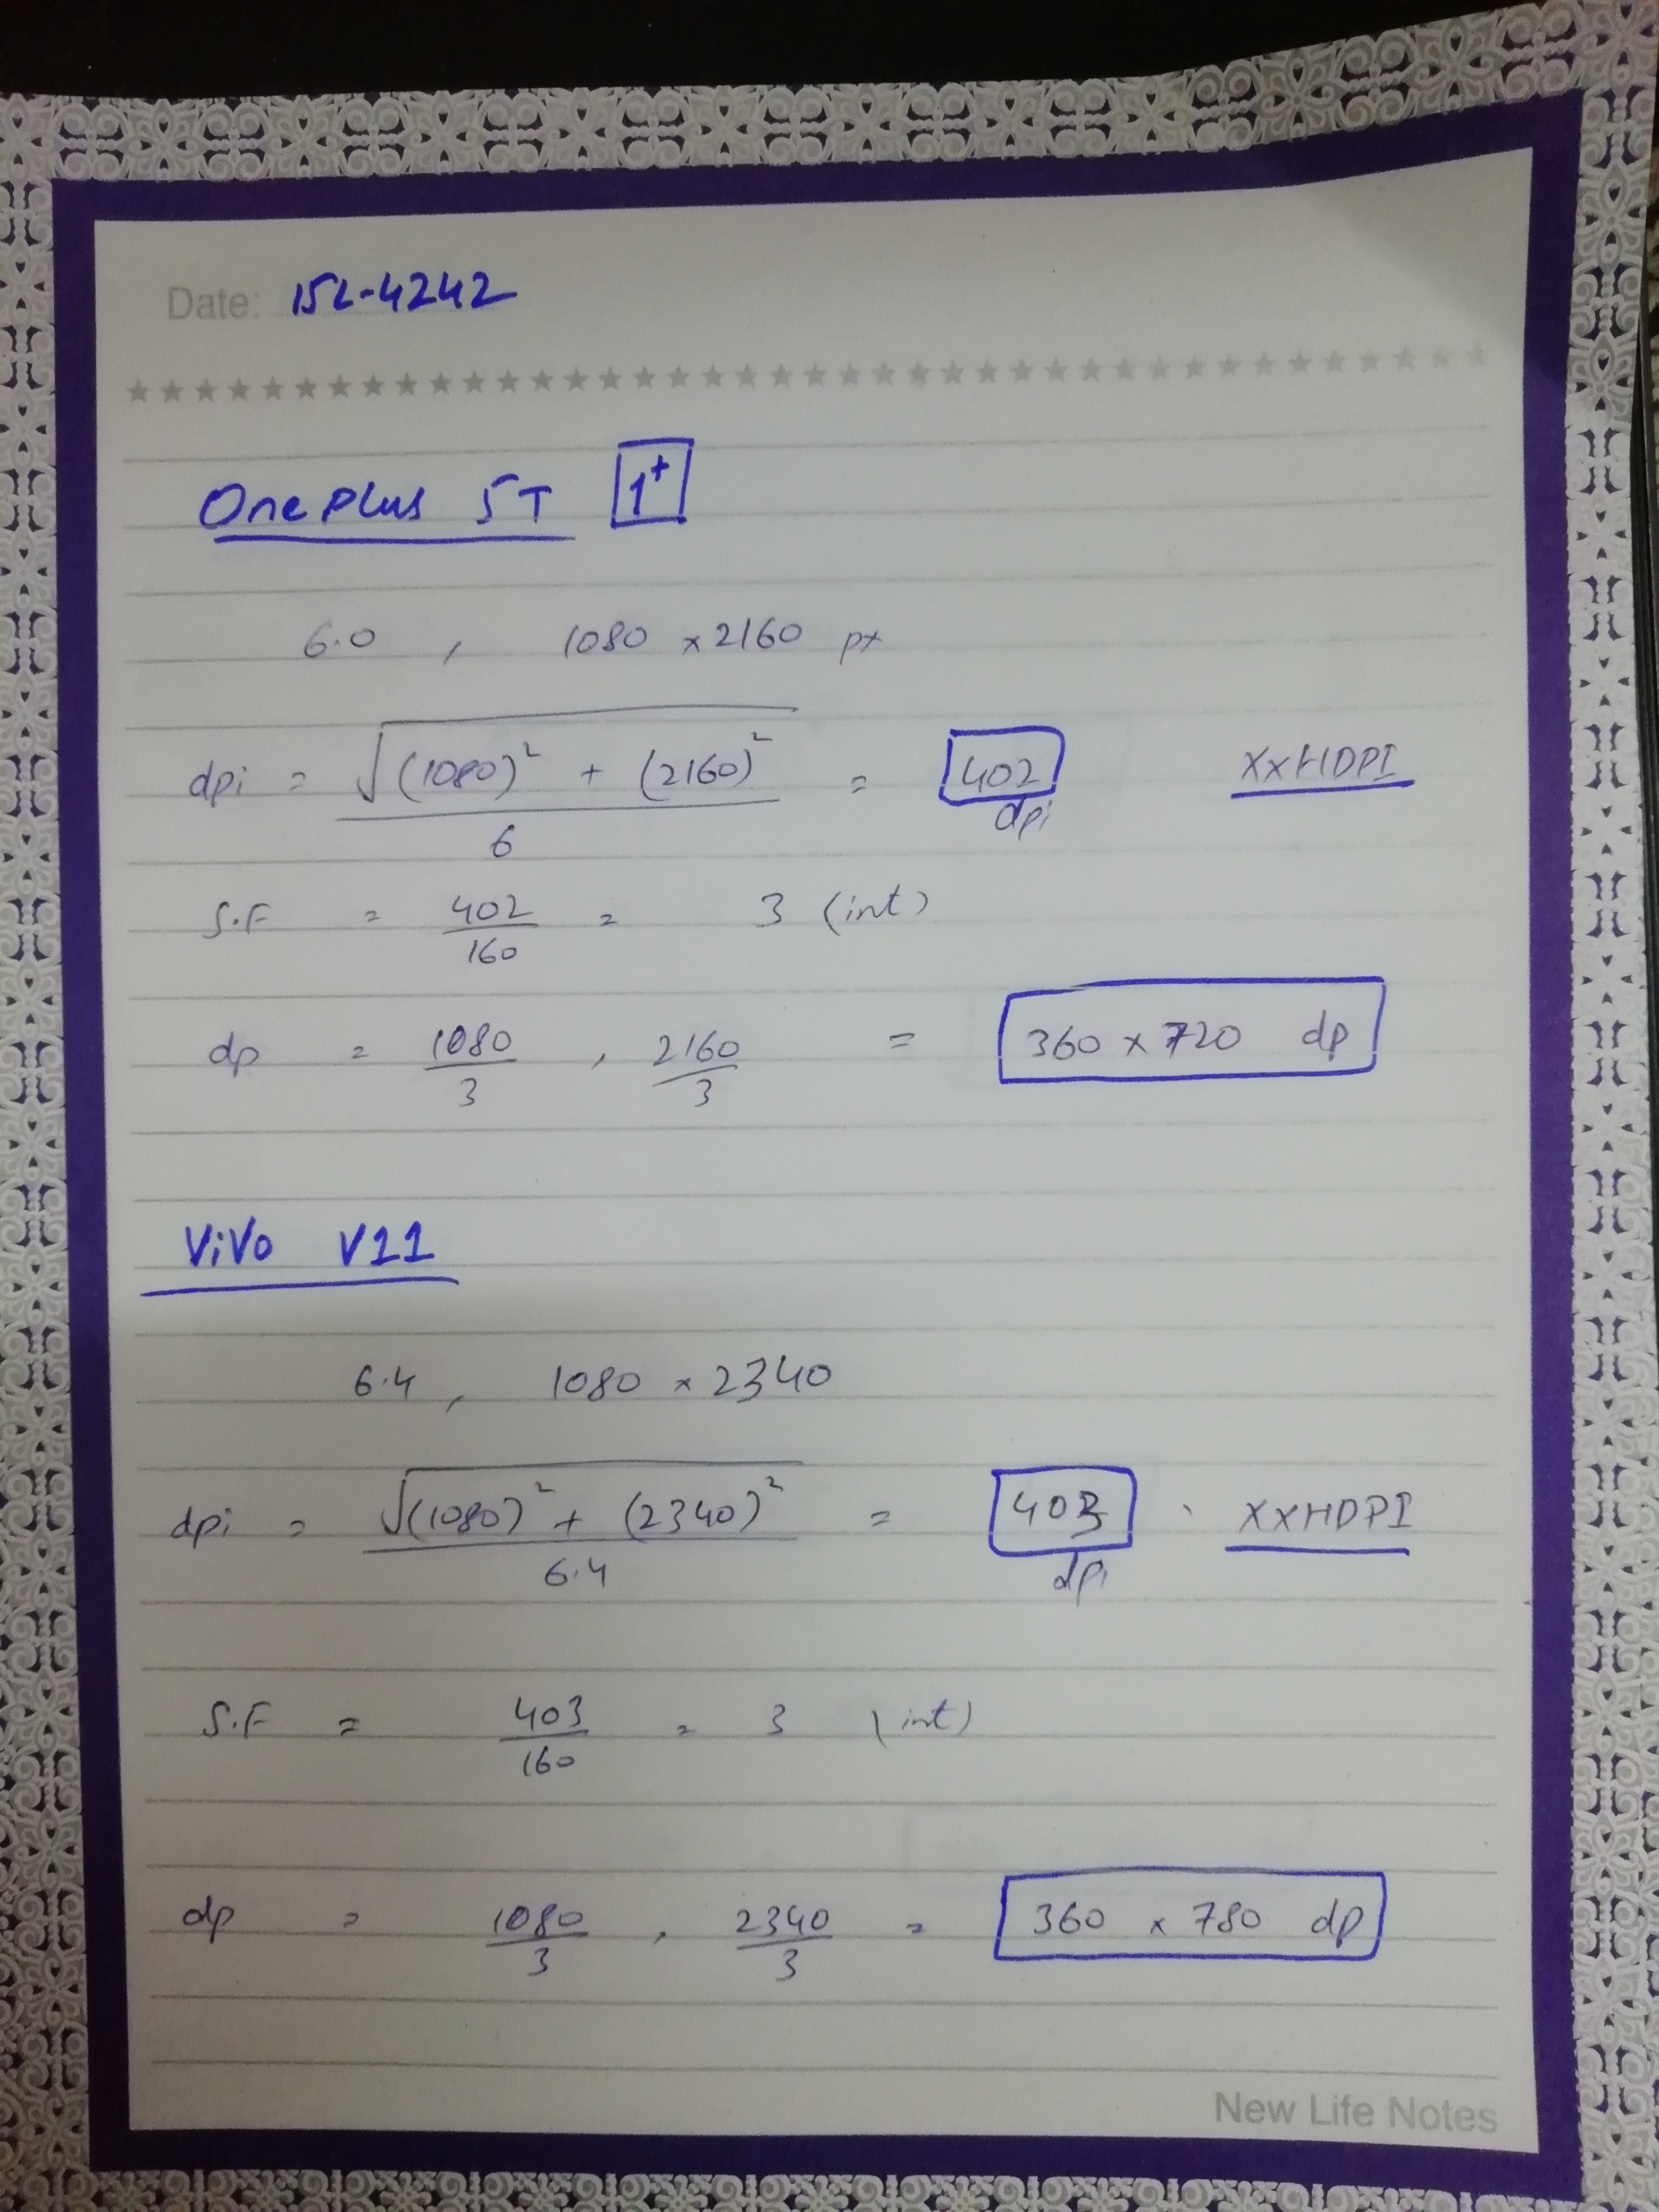 Date: 15L-4242
OnePlus 5T 1+
6.0 , 1080 x 2160 px
dpi = √(1080)² + (2160)² / 6 = 402 dpi XxHDPI
S.F = 402 / 160 = 3 (int)
dp = 1080 / 3 , 2160 / 3 = 360 x 720 dp
ViVo V11
6.4 , 1080 x 2340
dpi = √(1080)² + (2340)² / 6.4 = 403 dpi XxHDPI
S.F = 403 / 160 = 3 (int)
dp = 1080 / 3 , 2340 / 3 = 360 x 780 dp
New Life Notes